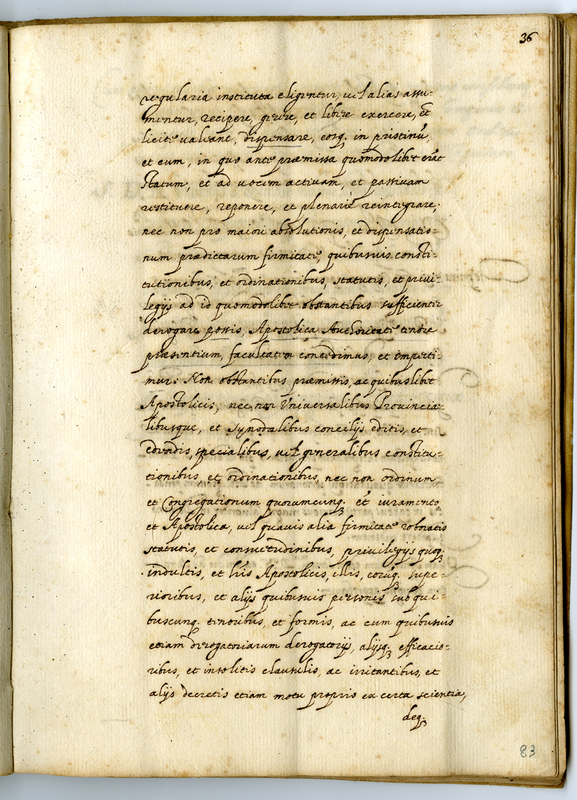 36
regularia instituta eligentur, uel alias assu-
mentur, recipere, gerere, et libere exercere, et
licite ualeant, dispensare, eosq. in pristinũ,
et eum, in quo ante præmissa quomodolibet erãt
statum, et ad uocem actiuam, et passiuam
restituere, reponere, et plenarie reintegrare;
nec non pro maiori absolutionis, et dispensatio-
num prædictarum firmitate, quibusuis consti-
tutionibus, et ordinationibus, statutis, et priui-
legijs ad id quomodolibet obstantibus sufficienter
derogare possis, Apostolica Authoritate tenore
præsentium, facultatem concedimus, et imparti-
mur: Non obstantibus præmissis, ac quibuslibet
Apostolicis, nec non Uniuersalibus Prouincia-
libusque, et Synodalibus concilijs editis, et
edendis, specialibus, uel generalibus constitu-
tionibus, et ordinationibus, nec non ordinum
et Congregationum quorumcunq. et iuramento
et Apostolica, uel quauis alia firmitate roboratis
statutis, et consuetudinibus, priuilegijs quoq.
indultis, et lris Apostolicis, illis, eorúq. supe-
rioribus, et alijs quibusuis personis sub qui-
buscunq. tenoribus, et formis, ac cum quibusuis
etiam derogatoriarum derogatorijs, alijsq. efficacio-
ribus, et insolitis clausulis, ac irritantibus, et
alijs decretis etiam motu proprio ex certa scientia,
deq.
83